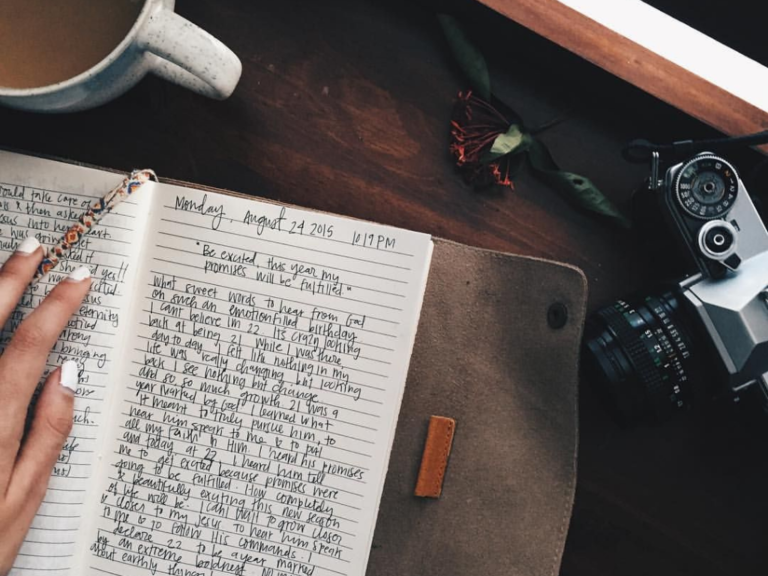 ould take care of
& then asked
esus into her heart
was going
asked it
yes!!
was
esus
eternity
strong
bringing
uch.
Monday, August 24 2015 1017PM
"Be excited, this year my
promises will be fulfilled"
What sweet words to hear from God
on such an emotionfilled birthday
I cant believe Im 22. Its crazy looking
back at being 21. While I was there,
day to day, I felt like nothing in my
life was really changing but looking
back I see nothing but change
and so so much growth. 21 was a
year marked by God. I learned what
it meant to truly pursue him, to
hear him speak to me & to put
all my faith in Him. I heard his promises
and today, at 22, I heard him tell
me to get excited because promises were
going to be fulfilled. How completely
& beautifully exciting this new season
of life will be. I can't wait to grow closer
& closer to my Jesus. To hear him speak
to me & to follow His commands. I
declare 22 to be a year marked
by an extreme boldness. No
about earthly things